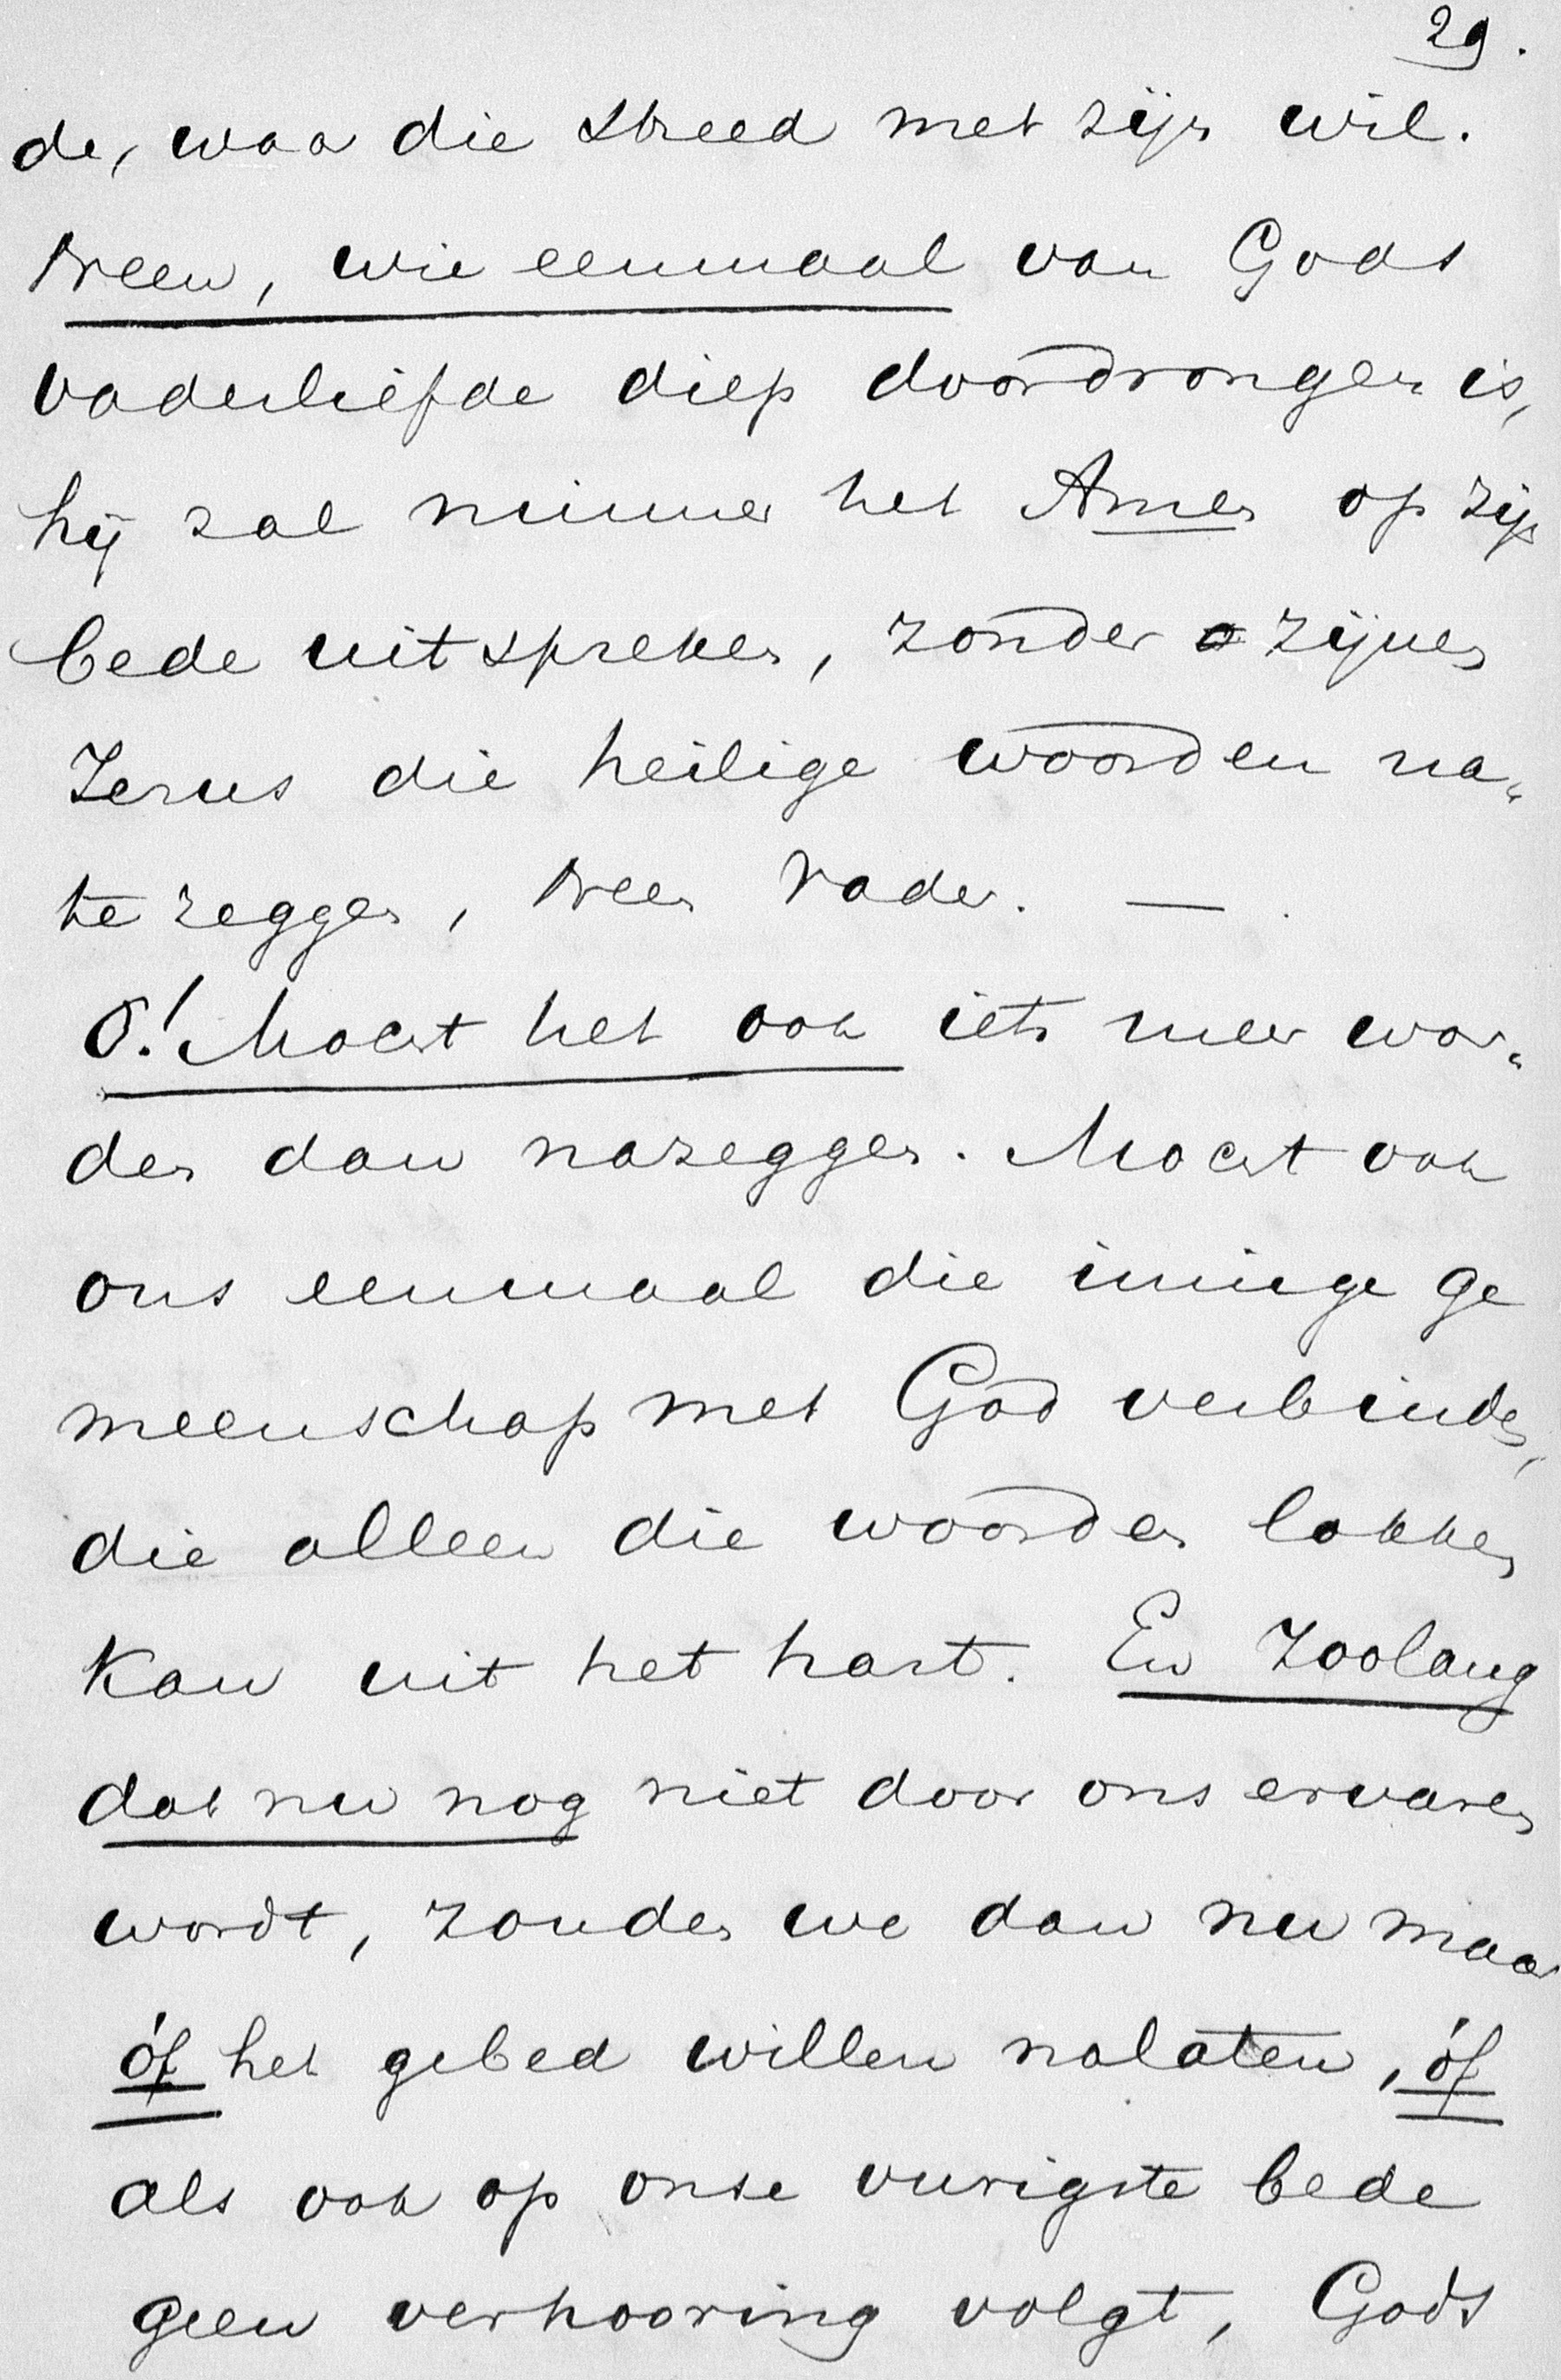 29.
de, waa die streed met zijn wil.
Neen, wie eenmaal van Gods
vaderliefde diep doordrongen is,
hij zal nimmer het Amen op zijn
bede uitspreken, zonder zijnen
Jezus die heilige woorden na„
te zeggen, Neen Vader. —
O! Mocht het ook iets meer wor„
den dan nazeggen. Mocht ook
ons eenmaal die innige ge
meenschap met God verbinden,
die alleen die woorden lokken
kan uit het hart. En zoolang
dat nu nog niet door ons ervaren
wordt, zouden we dan nu maar
óf het gebed willen nalaten, óf
als ook op onze vurigste bede
geen verhooring volgt, Gods